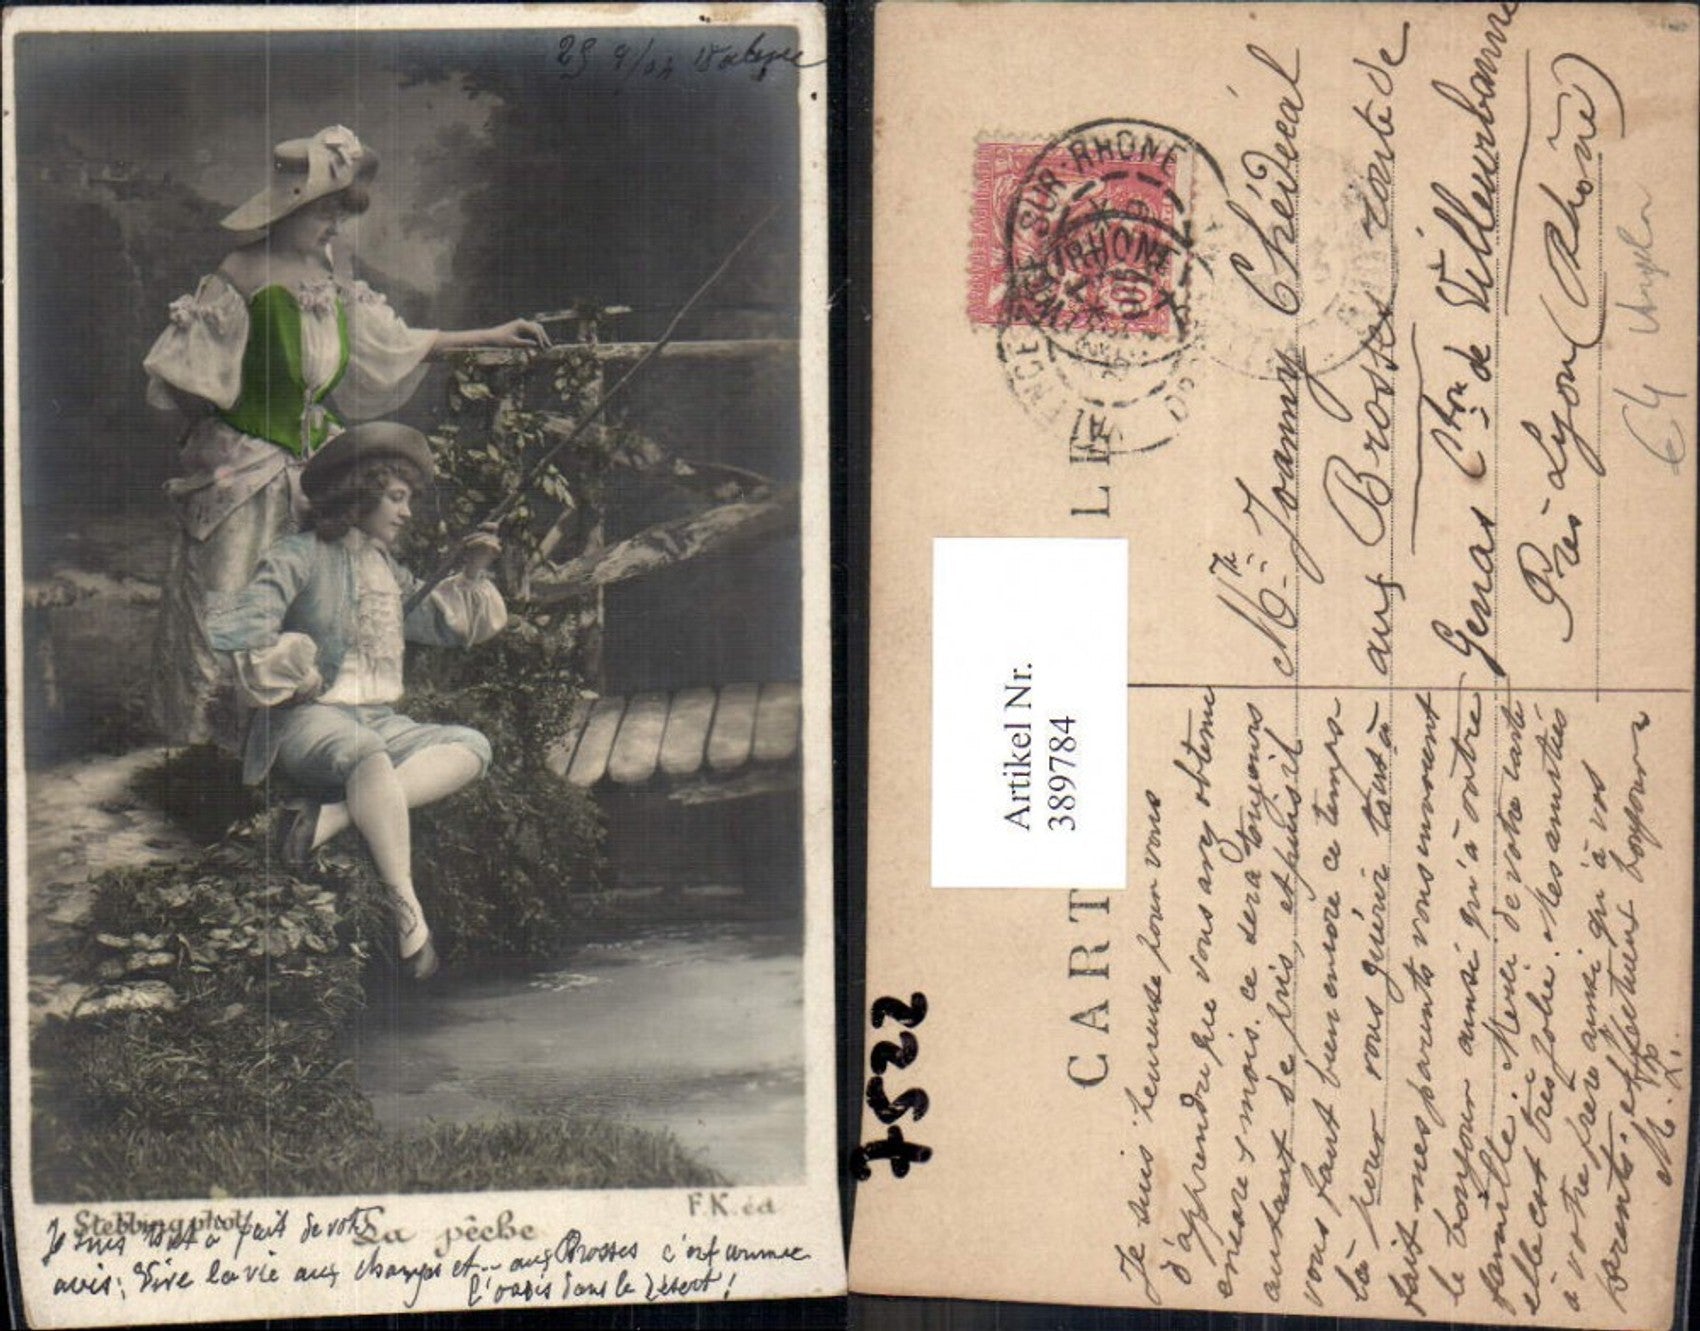 29 9/04 Valence
Stebbing phot
La pêche
F.K. éd
Je suis tout à fait de votre
avis: Vive la vie aux champs et... aux Brosses c'est comme
l'oasis dans le désert!
CARTE
SUR-RHONE
RHONE
Artikel Nr.
389784
7522
Mr Joanny Chédecal
aux Brosses route de
Genas Cton de Villeurbanne
Près Lyon (Rhône)
€4 Ungela
Je suis heureuse pour vous
d'apprendre que vous avez obtenu
encore mois. ce sera toujours
autant de pris, et puisqu'il
vous faut bien encore ce temps-
là pour vous guérir tout à
fait mes parents vous envoient
le bonjour ainsi qu'à votre
famille. Merci de votre carte
elle est très jolie. Mes amitiés
à votre frère ainsi qu'à vos
parents. et affectueux bonjours
M. L.